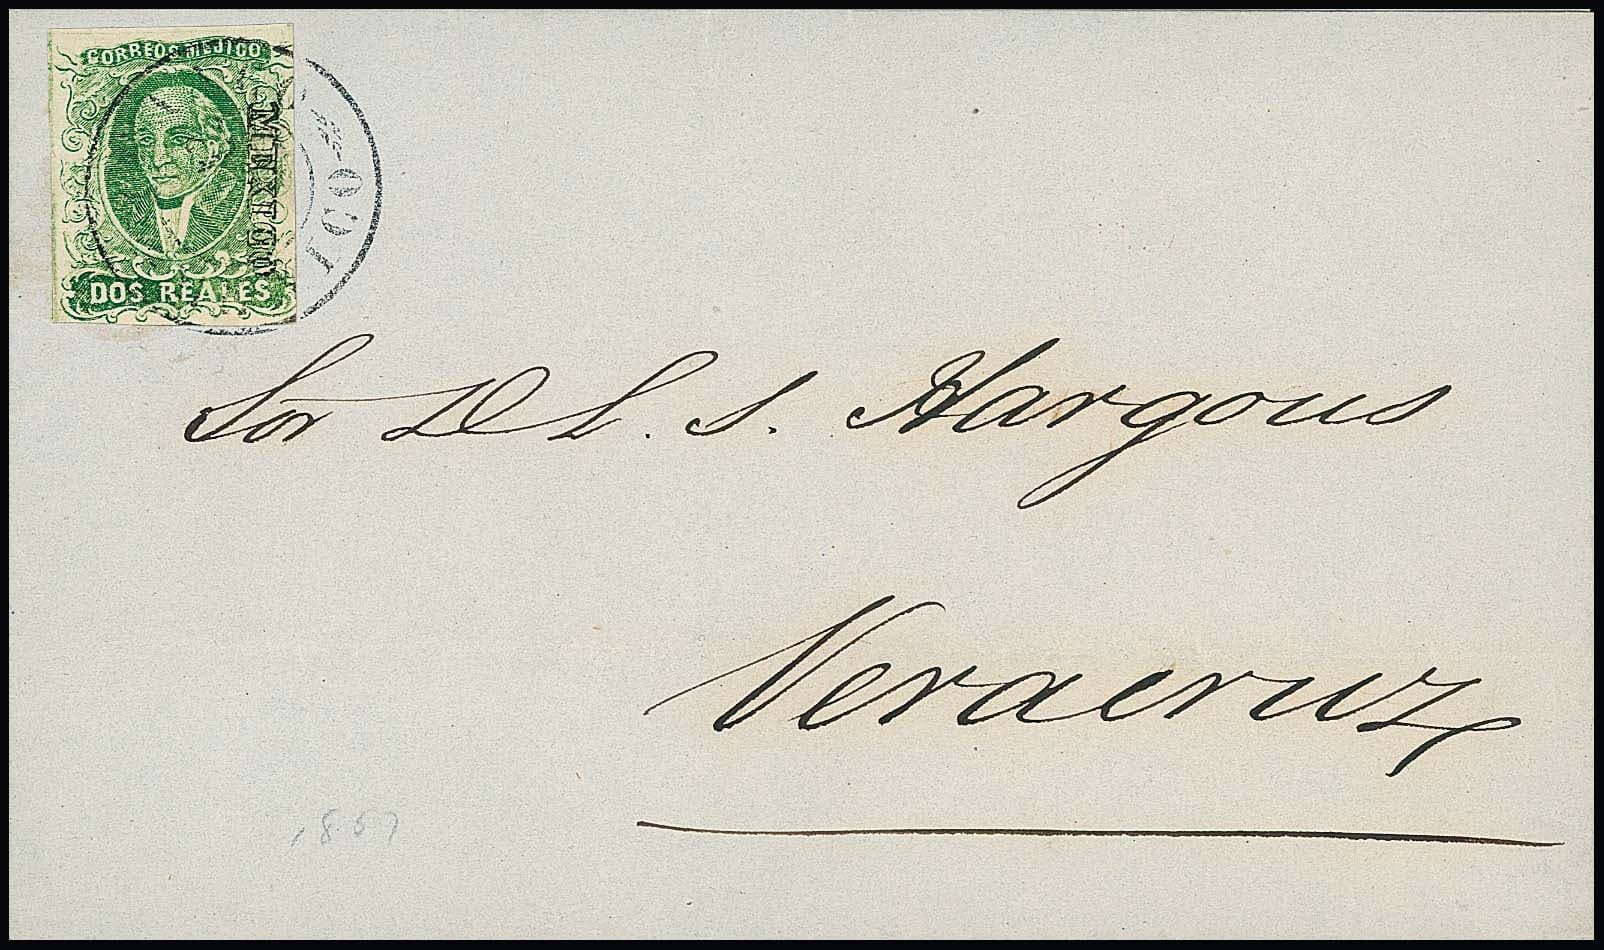 CORREOS MEJICO
MEXICO
DOS REALES
ICO
Sor D L. S. Hargous
Veracruz
1857